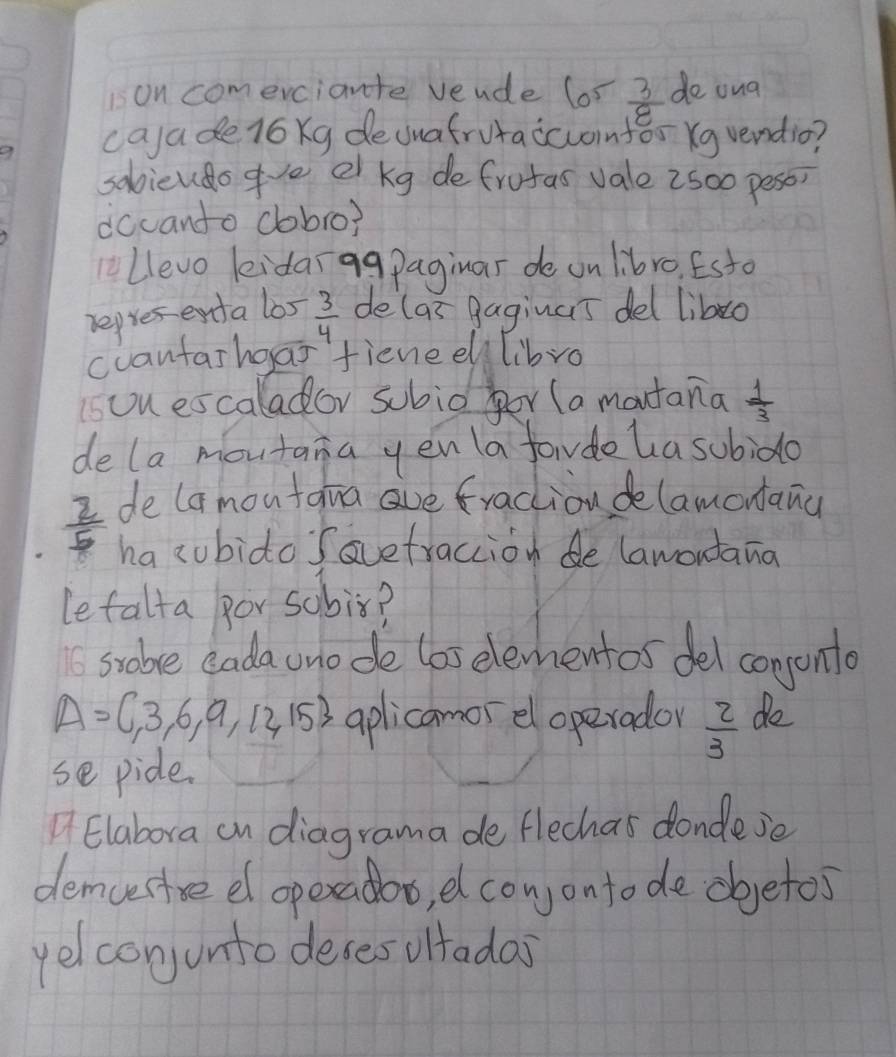 15 un comerciante vende los 3/8 de una
caja de 16 Kg de una fruta ¿cuantos Kg vendio?
sabiendo que el kg de frutas vale 2500 pesos
¿cuanto cobro?
Llevo leidas 99 paginas de un libro. Esto
representa los 3/4 de las Paginas del libro
cuantas hojas tiene el libro
15 un escalador subio por la montaña 1/3
de la montaña y en la tarde ha subido
2/5 de la montaña que fraccion de la montaña
ha subido ¿que fracción de la montaña
le falta por subir?
16 sobre cada uno de los elementos del conjunto
A={,3,6,9,12,15} aplicamos el operador 2/3 de
se pide.
17 Elabora un diagrama de flechas donde se
demuestre el operador, el conjunto de objetos
y el conjunto de resultados